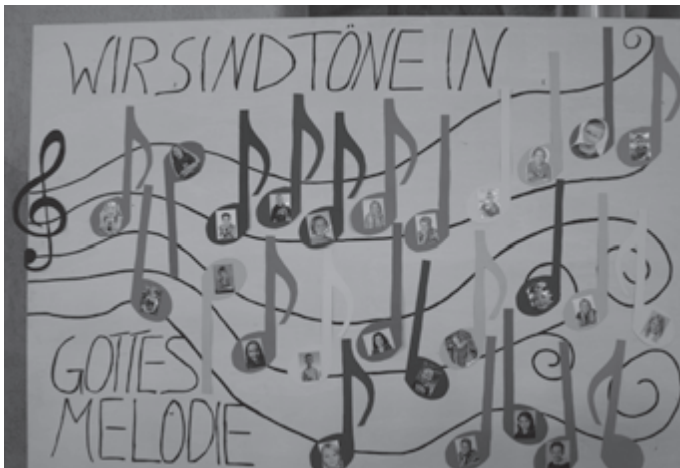 WIR SIND TÖNE IN
GOTTES
MELODIE